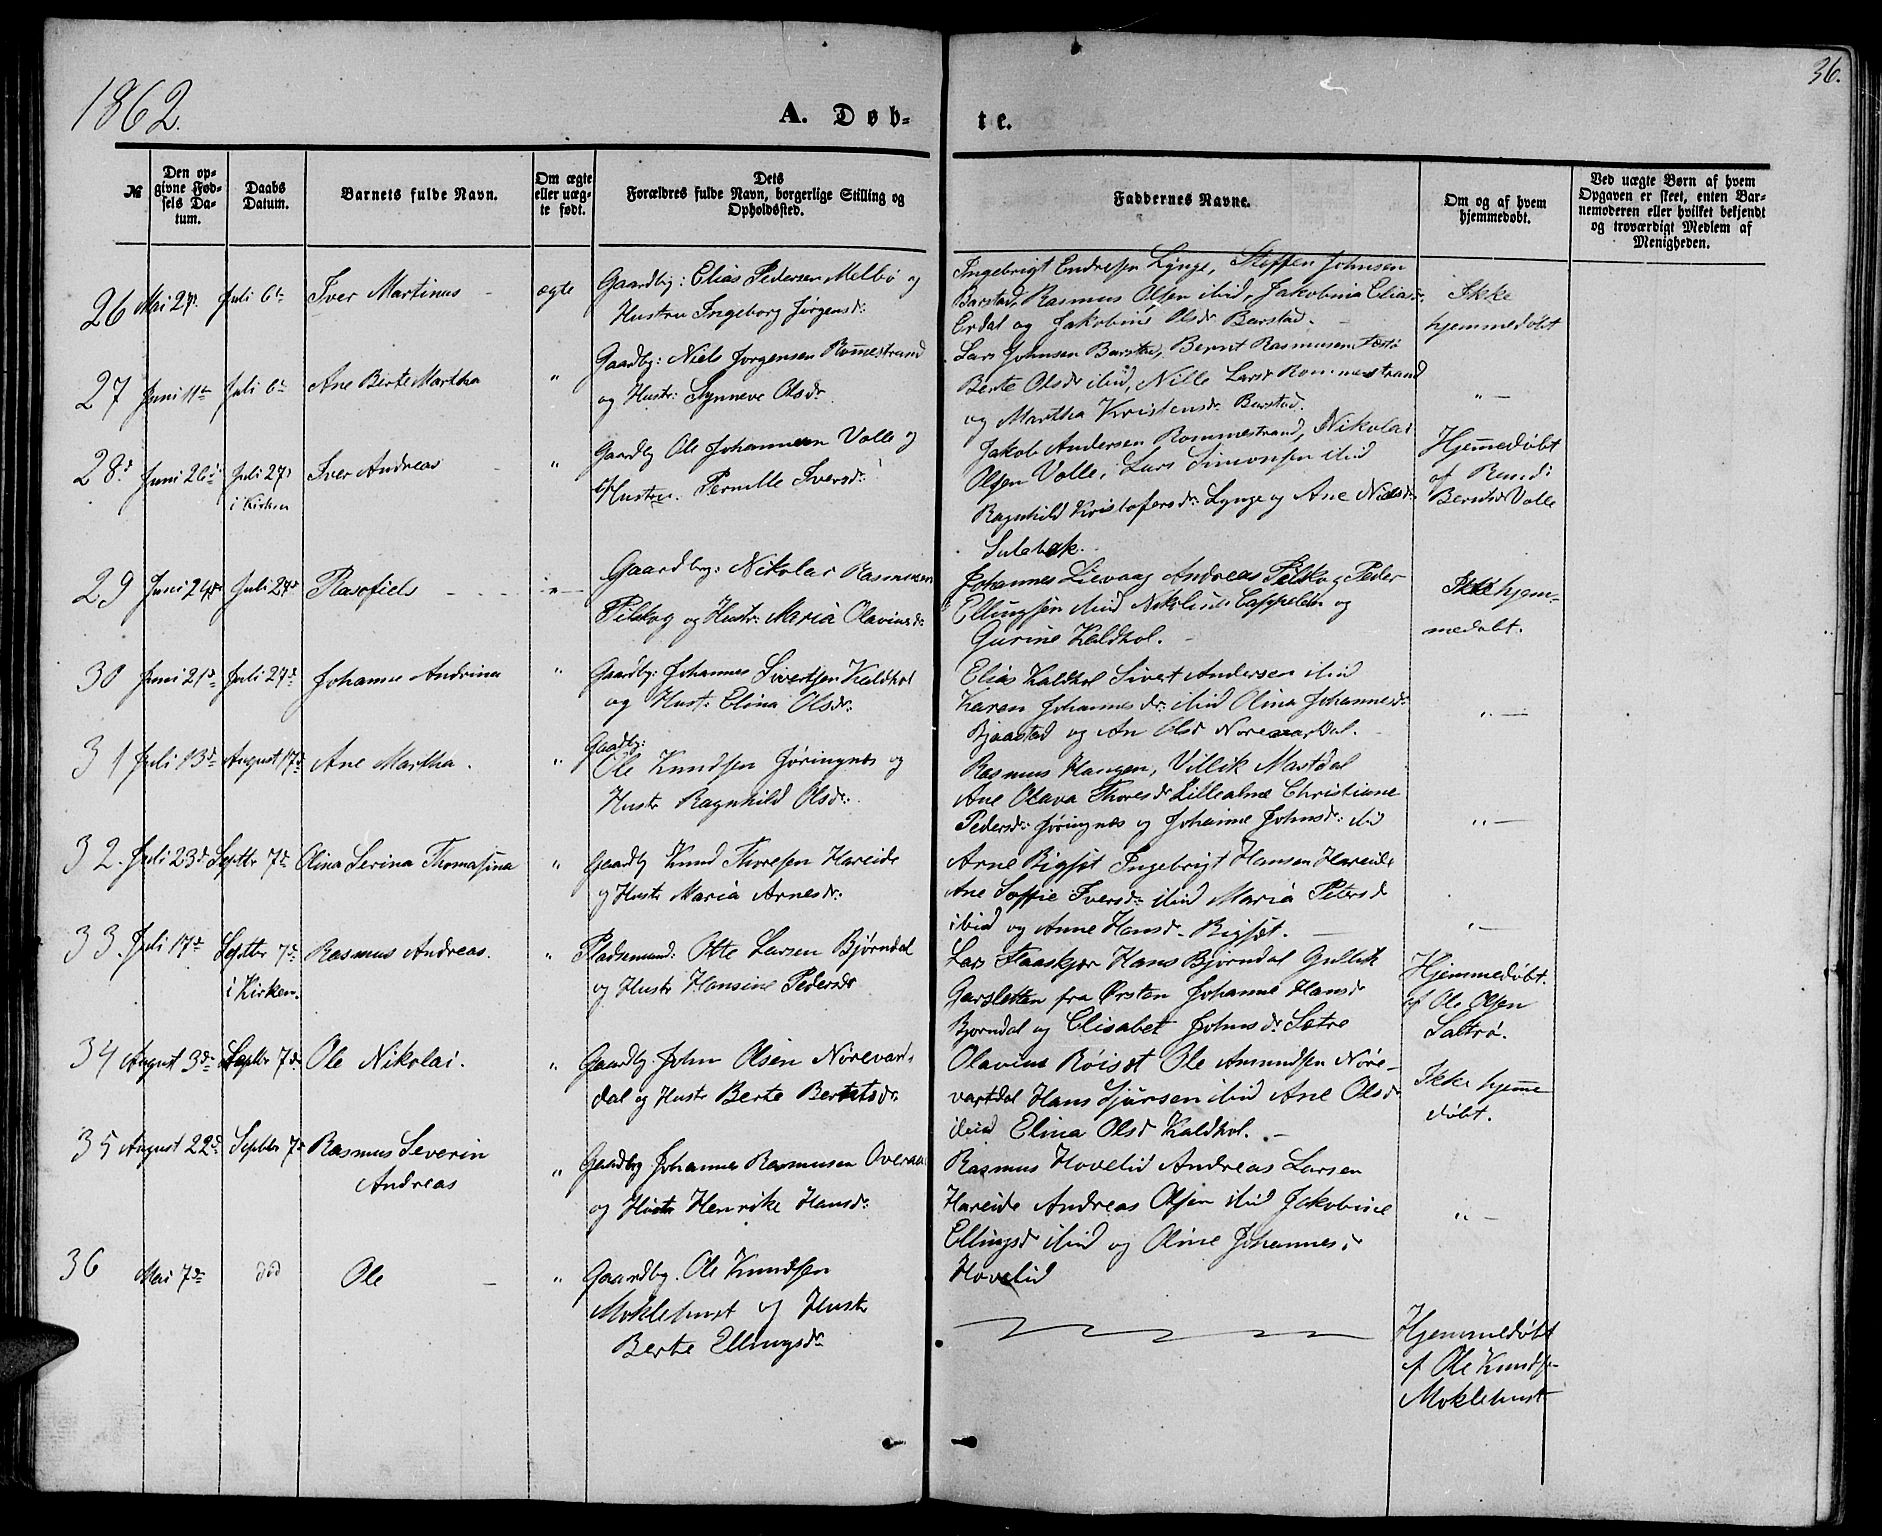 1862.
36.
A. Døb-
te.
№
Den op-
givne Fød-
sels Da-
tum.
Daabs
Datum.
Barnets fulde Navn.
Om ægte
eller uæg-
te født.
Dets
Forældres fulde Navn, borgerlige Stilling og
Opholdssted.
Faddernes Navne.
Om og af hvem
hjemmedøbt.
Ved uægte Børn af hvem
Opgaven er skeet, enten Bar-
nemoderen eller hvilket bekjendt
og troværdigt Medlem af
Menigheden.
26 Mai 27. Juli 6te Iver Martinus - ægte
Gaardbg: Elias Pedersen Melbø og
Hustru Ingeborg Jørgensd:
Ingebrigt Endresen Lynge, Steffen Johnsen
Barstad, Rasmus Olsen ibid, Jakobina Eliasd:
Erdal og Jakobine Olsdr Barstad. -
Ikke
hjemmedøbt
27 Juni 11te Juli 6te Ane Berte Martha "
Gaardbg: Niels Jørgensen Rommestrand
og Hustr: Synneve Olsdr
Lars Johnsen Barstad, Bernt Rasmusen
Berte Olsdr ibid, Nille Larsd Rommestrand
og Martha Kristensdr Barstad.
" -
28de Juni 26de Juli 27de
i Kirken
Iver Andreas - "
Gaardbg Ole Johannesen Volle og
Hustru. Pernille Iversd:
Jakob Andersen Rommestrand, Nikolai
Olsen Volle, Lars Simonsen ibid
Ragnhild Kristofersdr Lynge og Ane Nielsdr
Sulebak.
Hjemmedøbt
af
Volle
29 Juni 24de Juli 27de Rasofiels - - - "
Gaardbg: Nikolai Rasmusen
Pilskog og Hustr: Maria Olavinsdr
Johannes Lievaag Andreas Pilskog Peder
Ellingsen ibid Nikoline Cappelen og
Gurine Kaldhol. -
Ikke hjem-
medøbt.
30 Juni 21de Juli 27de Johanne Andrina "
Gaardbg: Johannes Sivertsen Kaldhol
og Hust: Elina Olsdr:
Elias Kaldhol Sivert Andersen ibid
Karen Johannesdr: ibid Olina Johannesdr
Bjaastad og An Olsd Norevardal.
" -
31 Juli 13de August 17de Ane Martha. "
Gaadbg:
Ole Knudsen Jøringnes og
Hustr Ragnhild Olsdr:
Rasmus Haugen, Villik Mastdal
Ane Olava Thoresdr Lillealme Christiane
Pedersdr: Jøringnes og Johanne Johnsdr: ibid
" -
32. Juli 23de Septbr 7de Olina Serina Thomasina "
Gaardbg Knud Thoresen Hareide
og Hustr Maria Arnesdr:
Arne Rigset Ingebrigt Hansen Hareide
Ane Soffie Iversdr: ibid Maria Petersd
ibid og Anne Hansd. Rigset. -
" -
33. Juli 17de Septbr 7de
i Kirken.
Rasmus Andreas. "
Pladsemand: Otte Larsen Bjørndal
og Hustr Hansine Pedersdr
Lars Flaaskjær Hans Bjørndal Gullik
Garsletten fra Ørsten Johanne Hansd
Bjørndal og Elisabet Johnsdr Sætre
Hjemmedøbt.
af Ole Olsen
Saltrø.
34 August 3de Septbr 7de Ole Nikolai. "
Gaardbg. John Olsen Nørevart-
dal og Hustr Berte Berntsdr.
Olavius Røiset Ole Amundsen Nøre-
vartdal Hans Sjursen ibid Ane Olsdr
ibid Elina Olsd Kaldhol. -
Ikke hjemme
døbt.
35 August 22de Septbr 7de Rasmus Severin
Andreas
"
Gaardbg Johannes Rasmusen Overaa
og Hustr Henrike Hansdr:
Rasmus Hovelid Andreas Larsen
Hareide Andreas Olsen ibid Jakobine
Ellingsd ibid og Oline Johannesdr
Hovelid
" -
36 Mai 7de død Ole - "
Gaardbg. Ole Knudsen
Moklebust og Hustr
Berte Ellingsdr
Hjemmedøbt
af Ole Knuds-
Moklebust